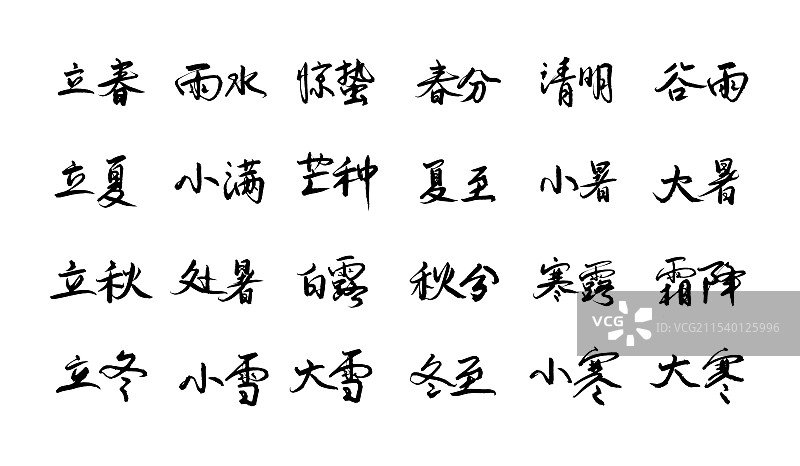 立春 雨水 惊蛰 春分 清明 谷雨
立夏 小满 芒种 夏至 小暑 大暑
立秋 处暑 白露 秋分 寒露 霜降
VCG ID:VCG211540125996
立冬 小雪 大雪 冬至 小寒 大寒